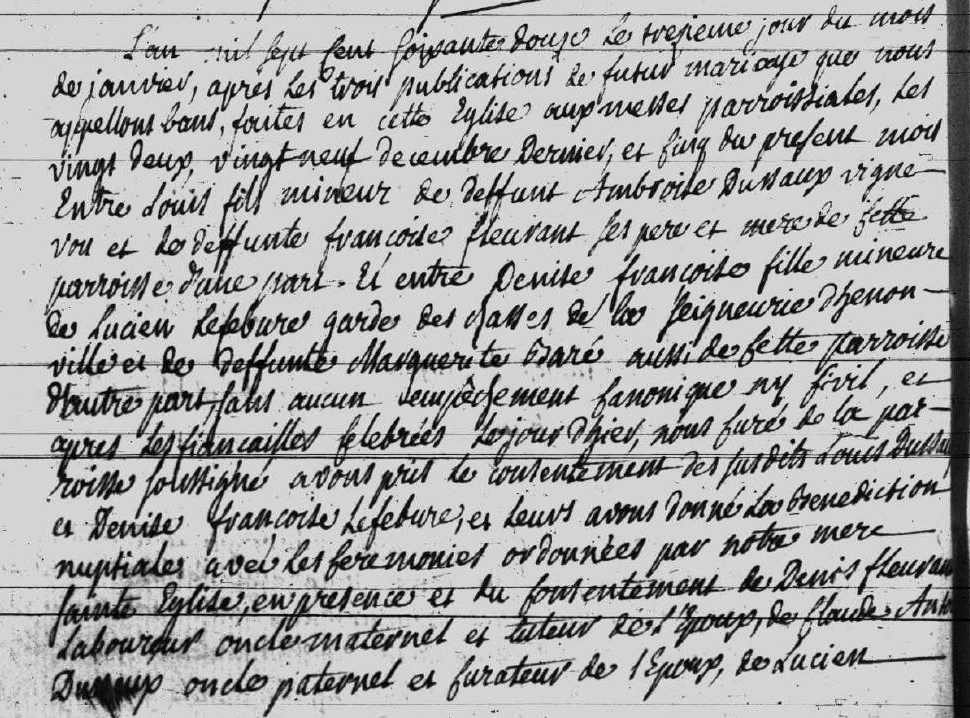 L'an mil sept cent soixante douze le trezieme jour du mois
de janvier, après les trois publications de futur mariage que nous
appellons bans, faites en cette Eglise aux messes parroissiales, les
vingt deux, vingt neuf decembre dernier, et cinq du present mois
Entre Louis fils mineur de deffunt Ambroise Dussaux vigne-
ron et de deffunte françoise fleurant ses pere et mere de cette
parroisse d'une part. Et entre Denise françoise fille mineure
de Lucien Lefebure garde des chasses de la seigneurie d'henon-
ville et de deffunte Marguerite Baré aussi de cette parroisse
d'autre part, sans aucun empêchement canonique ny civil, et
après les fiancailles celebrées le jour d'hier, nous curé de la par-
roisse soussigné avons pris le consentement des susdits Louis Dussaux
et Denise françoise Lefebure, et leurs avons donné la Benediction
nuptiale avec les ceremonies ordonnées par notre mere
sainte Eglise, en presence et du consentement de Denis fleurant
Laboureur oncle maternel et tuteur de l'Epoux, de Claude
Dussaux oncle paternel et curateur de l'Epoux, de Lucien